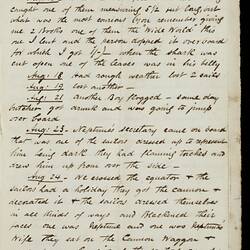 caught one of them measuring 5½ but long
what was the most curious you remember giving
me 2 Books one of them the Wide World this
one I lent and the person dropped it overboard
for which I got 1/- when the shark was
cut open one of the leaves was in his belly
Aug: 18 Had rough weather lost 2 sails
Aug: 19 lost another -
Aug: 21 Another Boy flogged - same day
butcher got drunk and was going to jump
over board
Aug: 23 - Neptune's Secretary came on board
that was one of the sailors dressed up to represent
him being dark they had flaming torches and
drew him up from over the side -
Aug 24 - We crossed the equator & the
sailors had a holiday they got the cannon &
decorated it & the sailors dressed themselves
in all kinds of ways and Blackened their
faces one was Neptune and one was Neptunes
Wife they sat on the Cannon Waggon